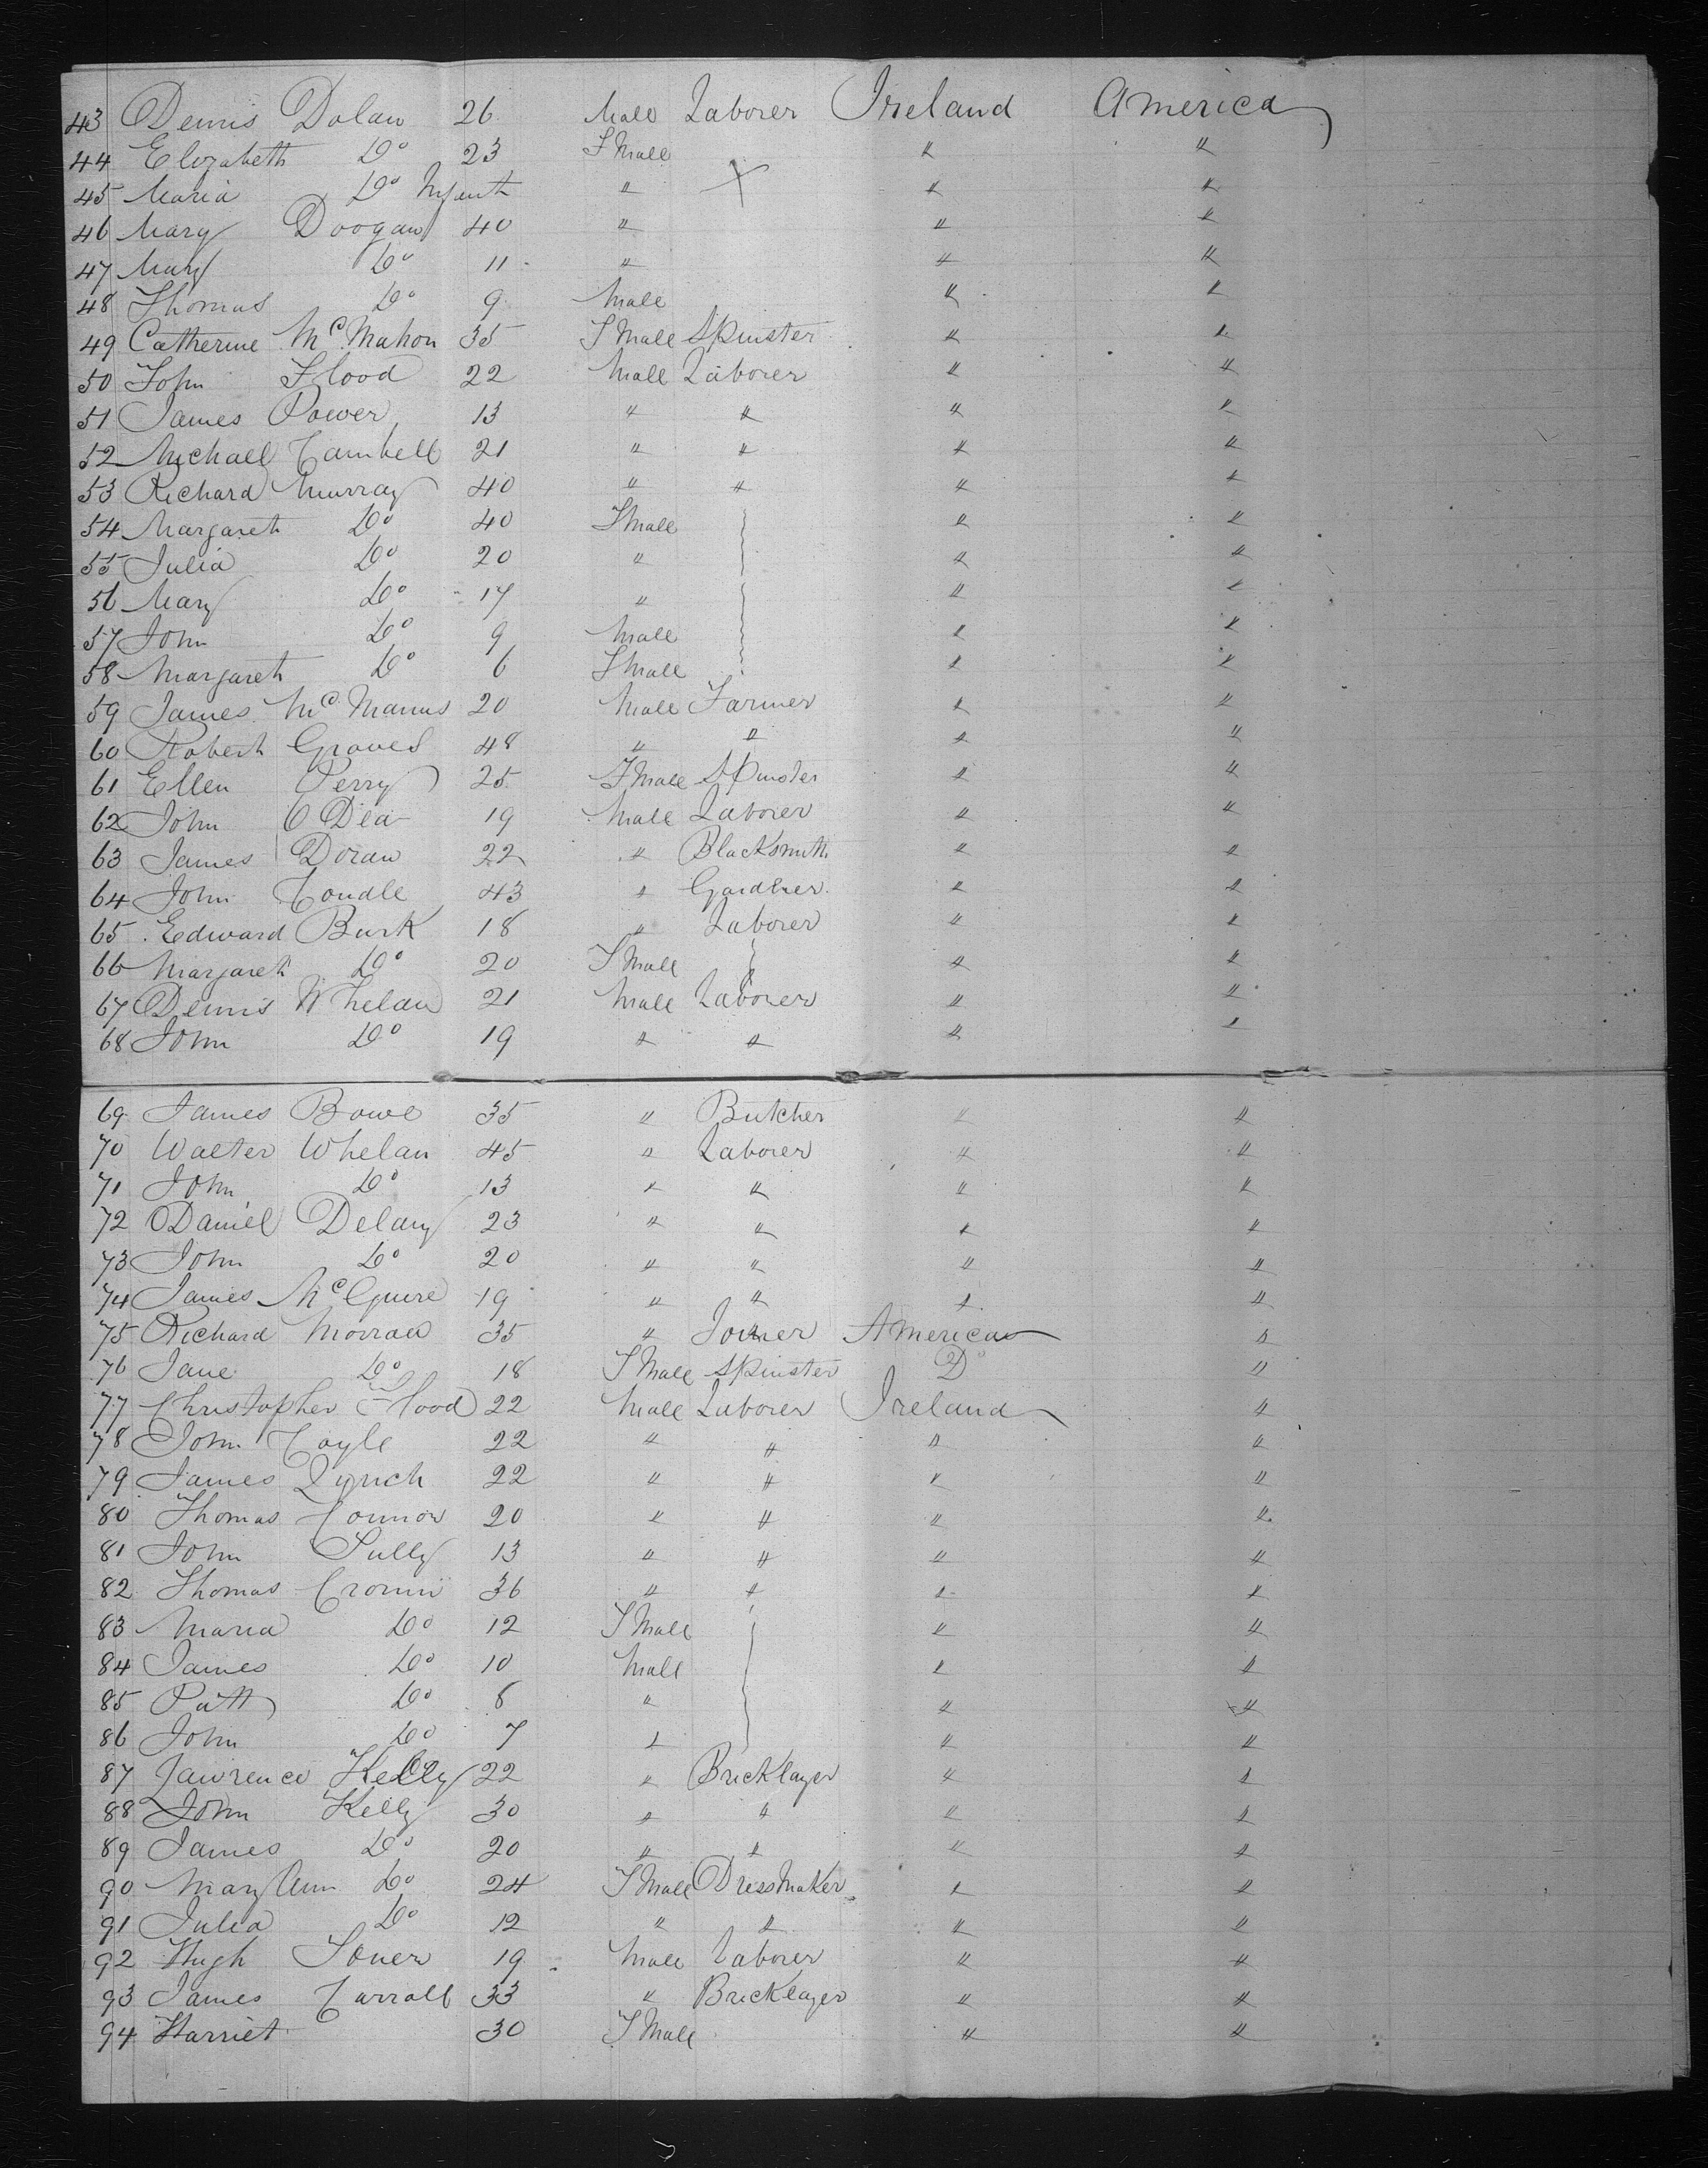 43 Dennis Dolan 26 Male Laborer Ireland America
44 Elizabeth Do 23 F Male " "
45 Maria Do Infant " " "
46 Mary Doogan 40 " " "
47 Mary Do 11 " " "
48 Thomas Do 9 Male " "
49 Catherine McMahon 35 F Male Spinster " "
50 John Flood 22 Male Laborer " "
51 James Power 13 " " " "
52 Michael Cambell 21 " " " "
53 Richard Murray 40 " " " "
54 Margaret Do 40 F Male " "
55 Julia Do 20 " " "
56 Mary Do 17 " " "
57 John Do 9 Male " "
58 Margaret Do 6 F Male " "
59 James McManus 20 Male Farmer " "
60 Robert Graves 48 " " " "
61 Ellen Perry 25 F Male Spinster " "
62 John O Dea 19 Male Laborer " "
63 James Doran 22 " Blacksmith " "
64 John Condle 43 " Gardner " "
65 Edward Burk 18 " Laborer " "
66 Margaret Do 20 F Male " "
67 Dennis Whelan 21 Male Laborer " "
68 John Do 19 " " " "
69 James Bowe 35 " Butcher " "
70 Walter Whelan 45 " Laborer " "
71 John Do 13 " " " "
72 Daniel Delany 23 " " " "
73 John Do 20 " " " "
74 James McGuire 19 " " " "
75 Richard 35 " Joiner America "
76 Jane Do 18 F Male Spinster Do "
77 Christopher Flood 22 Male Laborer Ireland "
78 John Coyle 22 " " " "
79 James Lynch 22 " " " "
80 Thomas Connor 20 " " " "
81 John 13 " " " "
82 Thomas Cronin 36 " " " "
83 Maria Do 12 F Male " "
84 James Do 10 Male " "
85 Patt Do 8 " " "
86 John Do 7 " " "
87 Lawrence Kelly 22 " Bricklayer " "
88 John Kelly 30 " " " "
89 James Do 20 " " " "
90 Mary Ann Do 24 F Male DressMaker " "
91 Julia Do 12 " " " "
92 Hugh 19 Male Laborer " "
93 James Carroll 33 " Bricklayer " "
94 Harriet 30 F Male " "